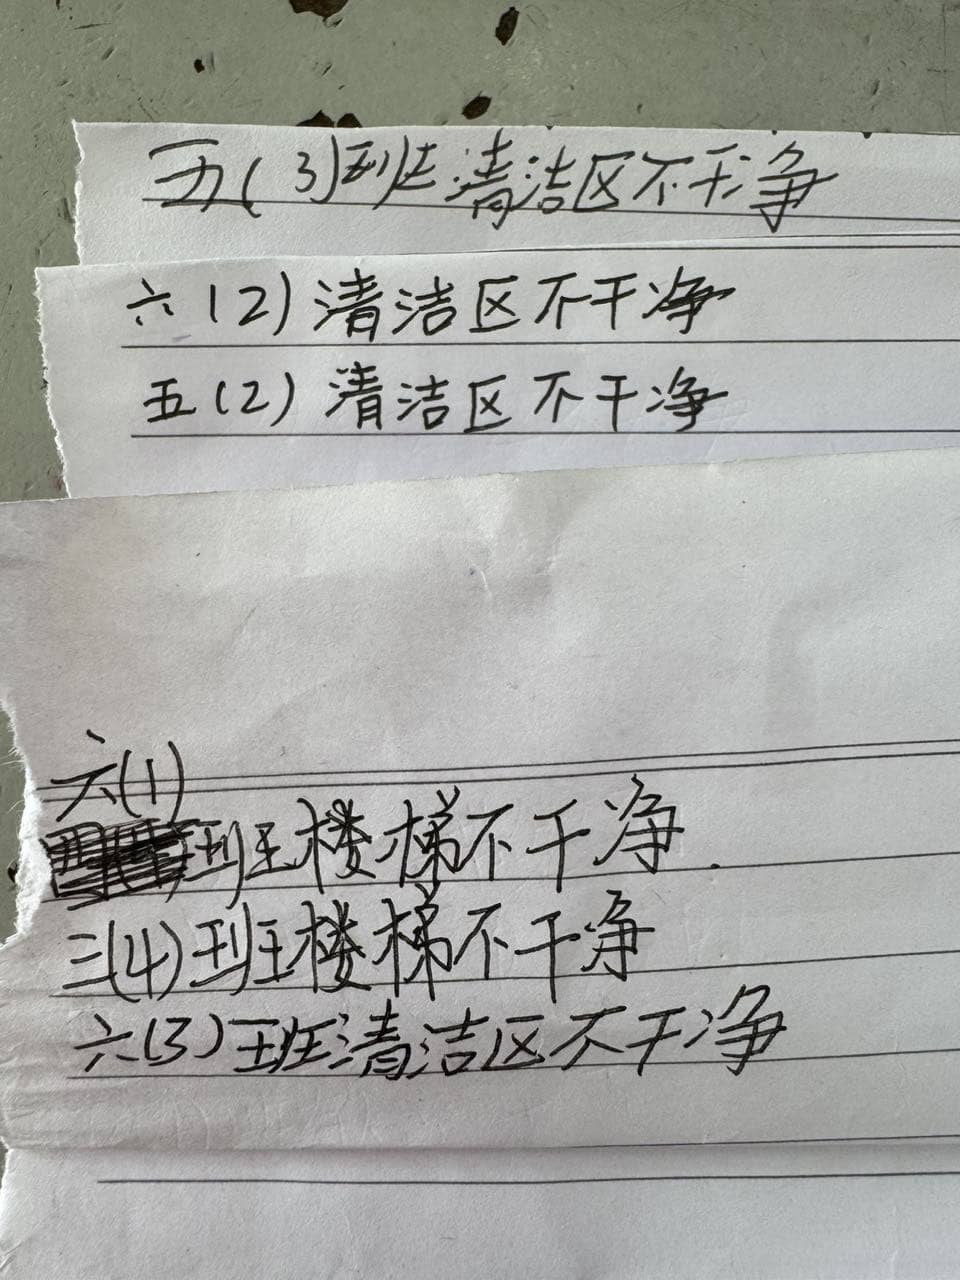 五(3)班清洁区不干净
六(2)清洁区不干净
五(2)清洁区不干净
六(1)
班楼梯不干净.
三(4)班楼梯不干净
六(3)班清洁区不干净